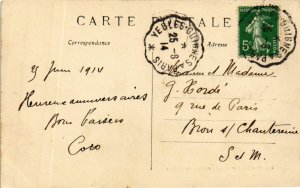 CARTE POSTALE
Correspondance
Adresse
25 - 6
14
PARIS
5c
25 Juin 1914
Heureux anniversaires
Bons baisers
Coco
Monsieur et Madame
G. Hordé
9 rue de Paris
Brou s/ Chantereine
S et M.